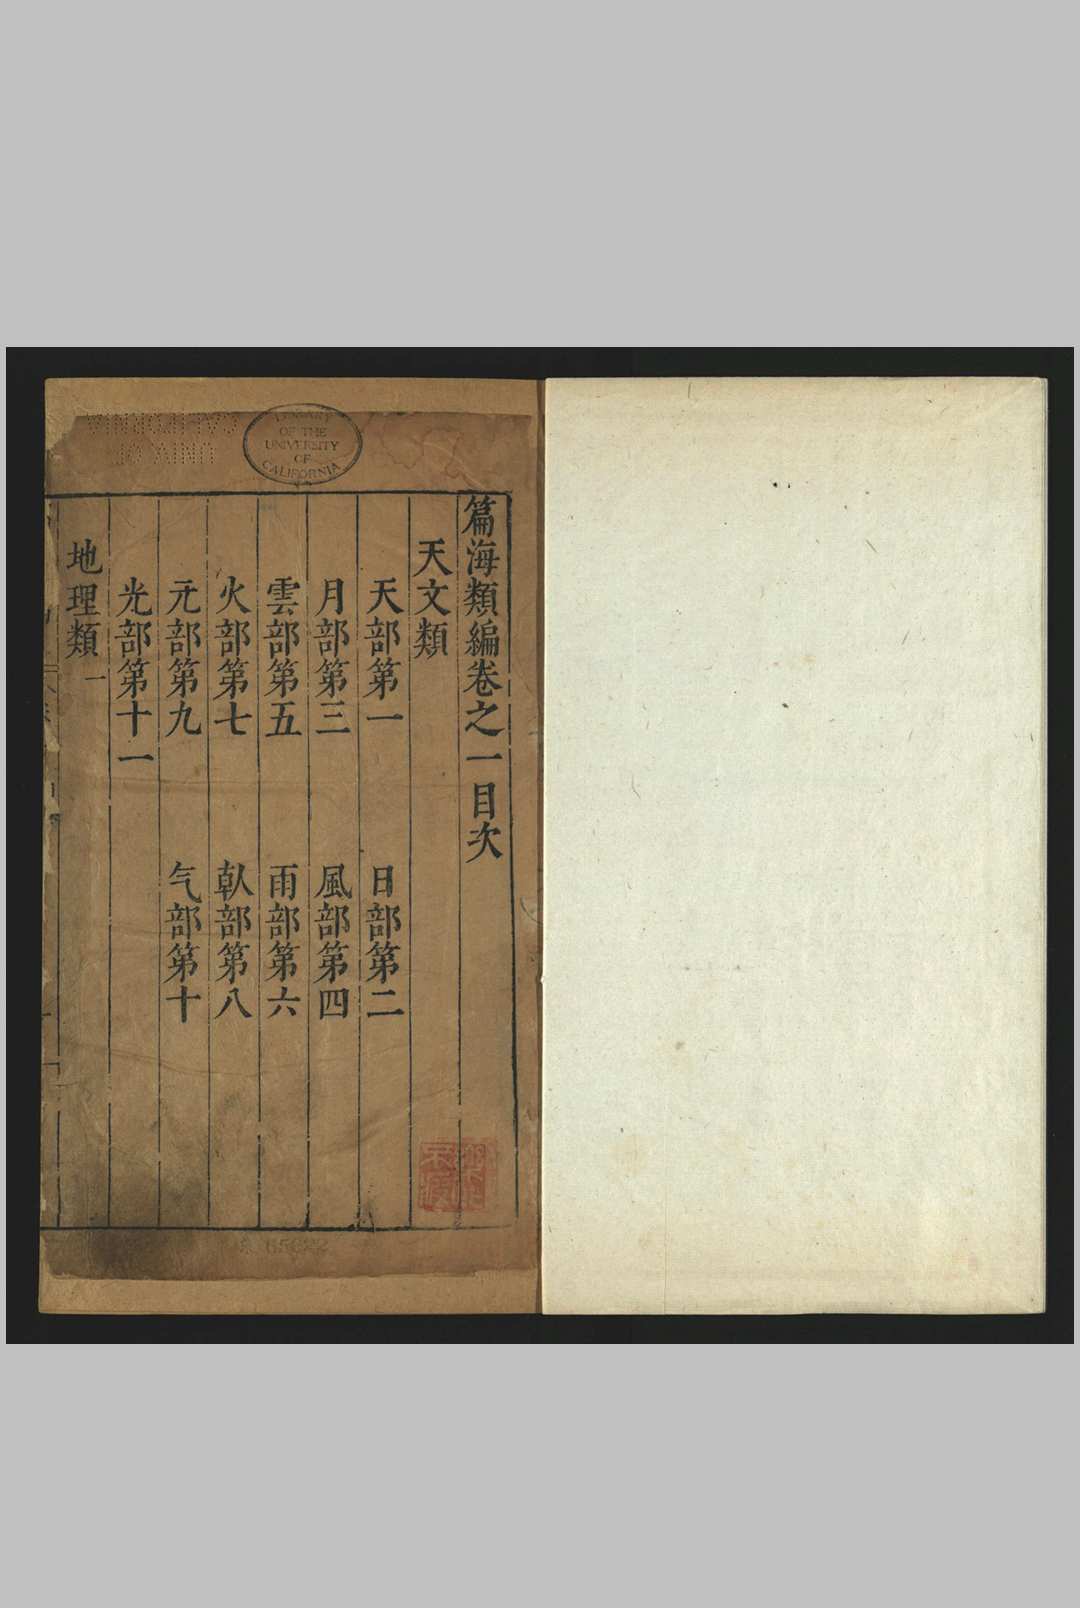 篇海類編卷之一目次
天文類
天部第一 日部第二
月部第三 風部第四
雲部第五 雨部第六
火部第七 倝部第八
旡部第九 气部第十
光部第十一
地理類一
LIBRARY OF THE UNIVERSITY OF CALIFORNIA
UNIV. OF
CALIFORNIA